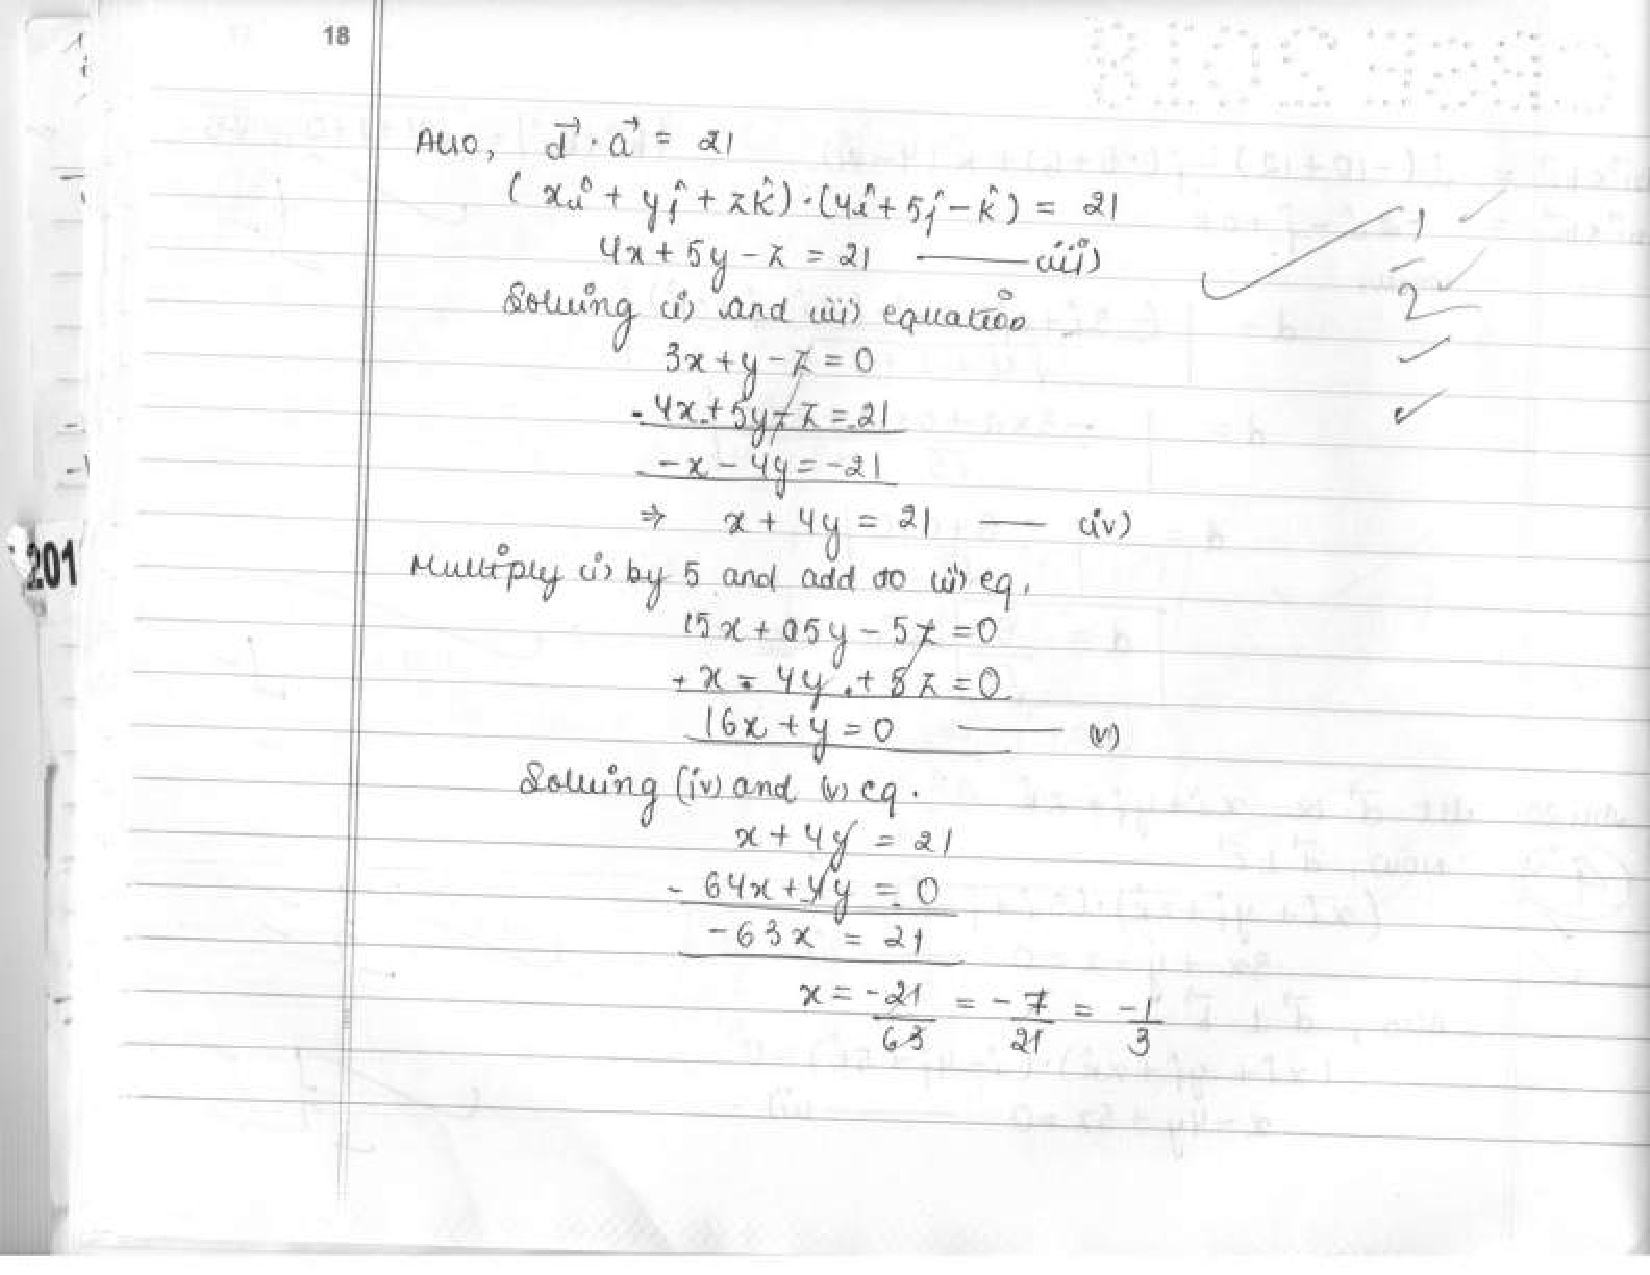 18
CBSE 2018
Also, d⃗ · a⃗ = 21
(xî + yĵ + zk̂) · (4î + 5ĵ - k̂) = 21
4x + 5y - z = 21 —— (iii)
1/2
Solving (i) and (iii) equation
3x + y - z = 0
- 4x + 5y - z = 21
- x - 4y = -21
⇒ x + 4y = 21 —— (iv)
201
Multiply (i) by 5 and add to (ii) eq.
15x + 05y - 5z = 0
+ x - 4y + 5z = 0
16x + y = 0 —— (v)
Solving (iv) and (v) eq.
x + 4y = 21
- 64x + 4y = 0
-63x = 21
x = -21/63 = -7/21 = -1/3